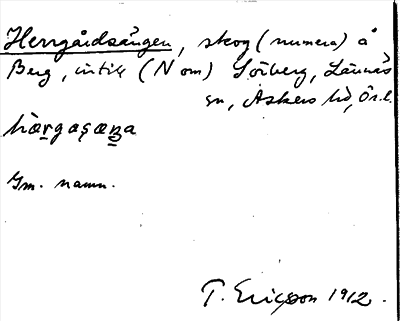 Herrgårdsängen, skog (numera) å
Berg, intill (N om) Sörberg, Lännäs
sn, Askers hd, Ör. l.
Gm. namn.
T. Ericsson 1912.